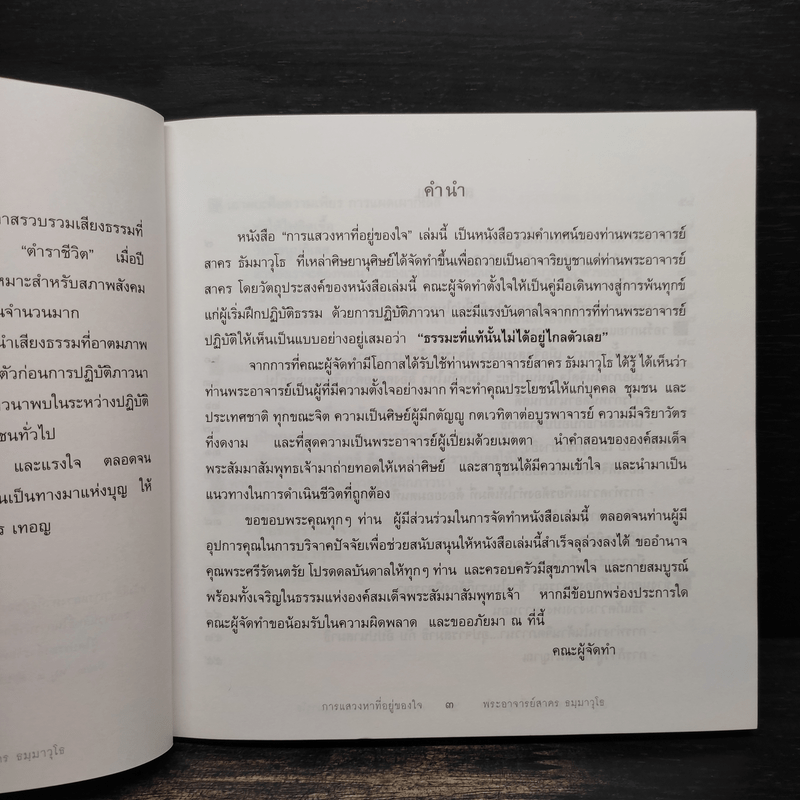 าสรวบรวมเสียงธรรมที่
“ตำราชีวิต” เมื่อปี
หมาะสำหรับสภาพสังคม
นจำนวนมาก
นำเสียงธรรมที่อาตมภาพ
ตัวก่อนการปฏิบัติภาวนา
าวนาพบในระหว่างปฏิบัติ
ชนทั่วไป
และแรงใจ ตลอดจน
นเป็นทางมาแห่งบุญ ให้
ร เทอญ
คร ธมฺมาวุโธ
คำนำ
หนังสือ “การแสวงหาที่อยู่ของใจ” เล่มนี้ เป็นหนังสือรวมคำเทศน์ของท่านพระอาจารย์
สาคร ธัมมาวุโธ ที่เหล่าศิษยานุศิษย์ได้จัดทำขึ้นเพื่อถวายเป็นอาจาริยบูชาแด่ท่านพระอาจารย์
สาคร โดยวัตถุประสงค์ของหนังสือเล่มนี้ คณะผู้จัดทำตั้งใจให้เป็นคู่มือเดินทางสู่การพ้นทุกข์
แก่ผู้เริ่มฝึกปฏิบัติธรรม ด้วยการปฏิบัติภาวนา และมีแรงบันดาลใจจากการที่ท่านพระอาจารย์
ปฏิบัติให้เห็นเป็นแบบอย่างอยู่เสมอว่า “ธรรมะที่แท้นั้นไม่ได้อยู่ไกลตัวเลย”
จากการที่คณะผู้จัดทำมีโอกาสได้รับใช้ท่านพระอาจารย์สาคร ธัมมาวุโธ ได้รู้ ได้เห็นว่า
ท่านพระอาจารย์เป็นผู้ที่มีความตั้งใจอย่างมาก ที่จะทำคุณประโยชน์ให้แก่บุคคล ชุมชน และ
ประเทศชาติ ทุกขณะจิต ความเป็นศิษย์ผู้มีกตัญญู กตเวทิตาต่อบูรพาจารย์ ความมีจริยาวัตร
ที่งดงาม และที่สุดความเป็นพระอาจารย์ผู้เปี่ยมด้วยเมตตา นำคำสอนขององค์สมเด็จ
พระสัมมาสัมพุทธเจ้ามาถ่ายทอดให้เหล่าศิษย์ และสาธุชนได้มีความเข้าใจ และนำมาเป็น
แนวทางในการดำเนินชีวิตที่ถูกต้อง
ขอขอบพระคุณทุกๆ ท่าน ผู้มีส่วนร่วมในการจัดทำหนังสือเล่มนี้ ตลอดจนท่านผู้มี
อุปการคุณในการบริจาคปัจจัยเพื่อช่วยสนับสนุนให้หนังสือเล่มนี้สำเร็จลุล่วงลงได้ ขออำนาจ
คุณพระศรีรัตนตรัย โปรดดลบันดาลให้ทุกๆ ท่าน และครอบครัวมีสุขภาพใจ และกายสมบูรณ์
พร้อมทั้งเจริญในธรรมแห่งองค์สมเด็จพระสัมมาสัมพุทธเจ้า หากมีข้อบกพร่องประการใด
คณะผู้จัดทำขอน้อมรับในความผิดพลาด และขออภัยมา ณ ที่นี้
คณะผู้จัดทำ
การแสวงหาที่อยู่ของใจ ๓ พระอาจารย์สาคร ธมฺมาวุโธ